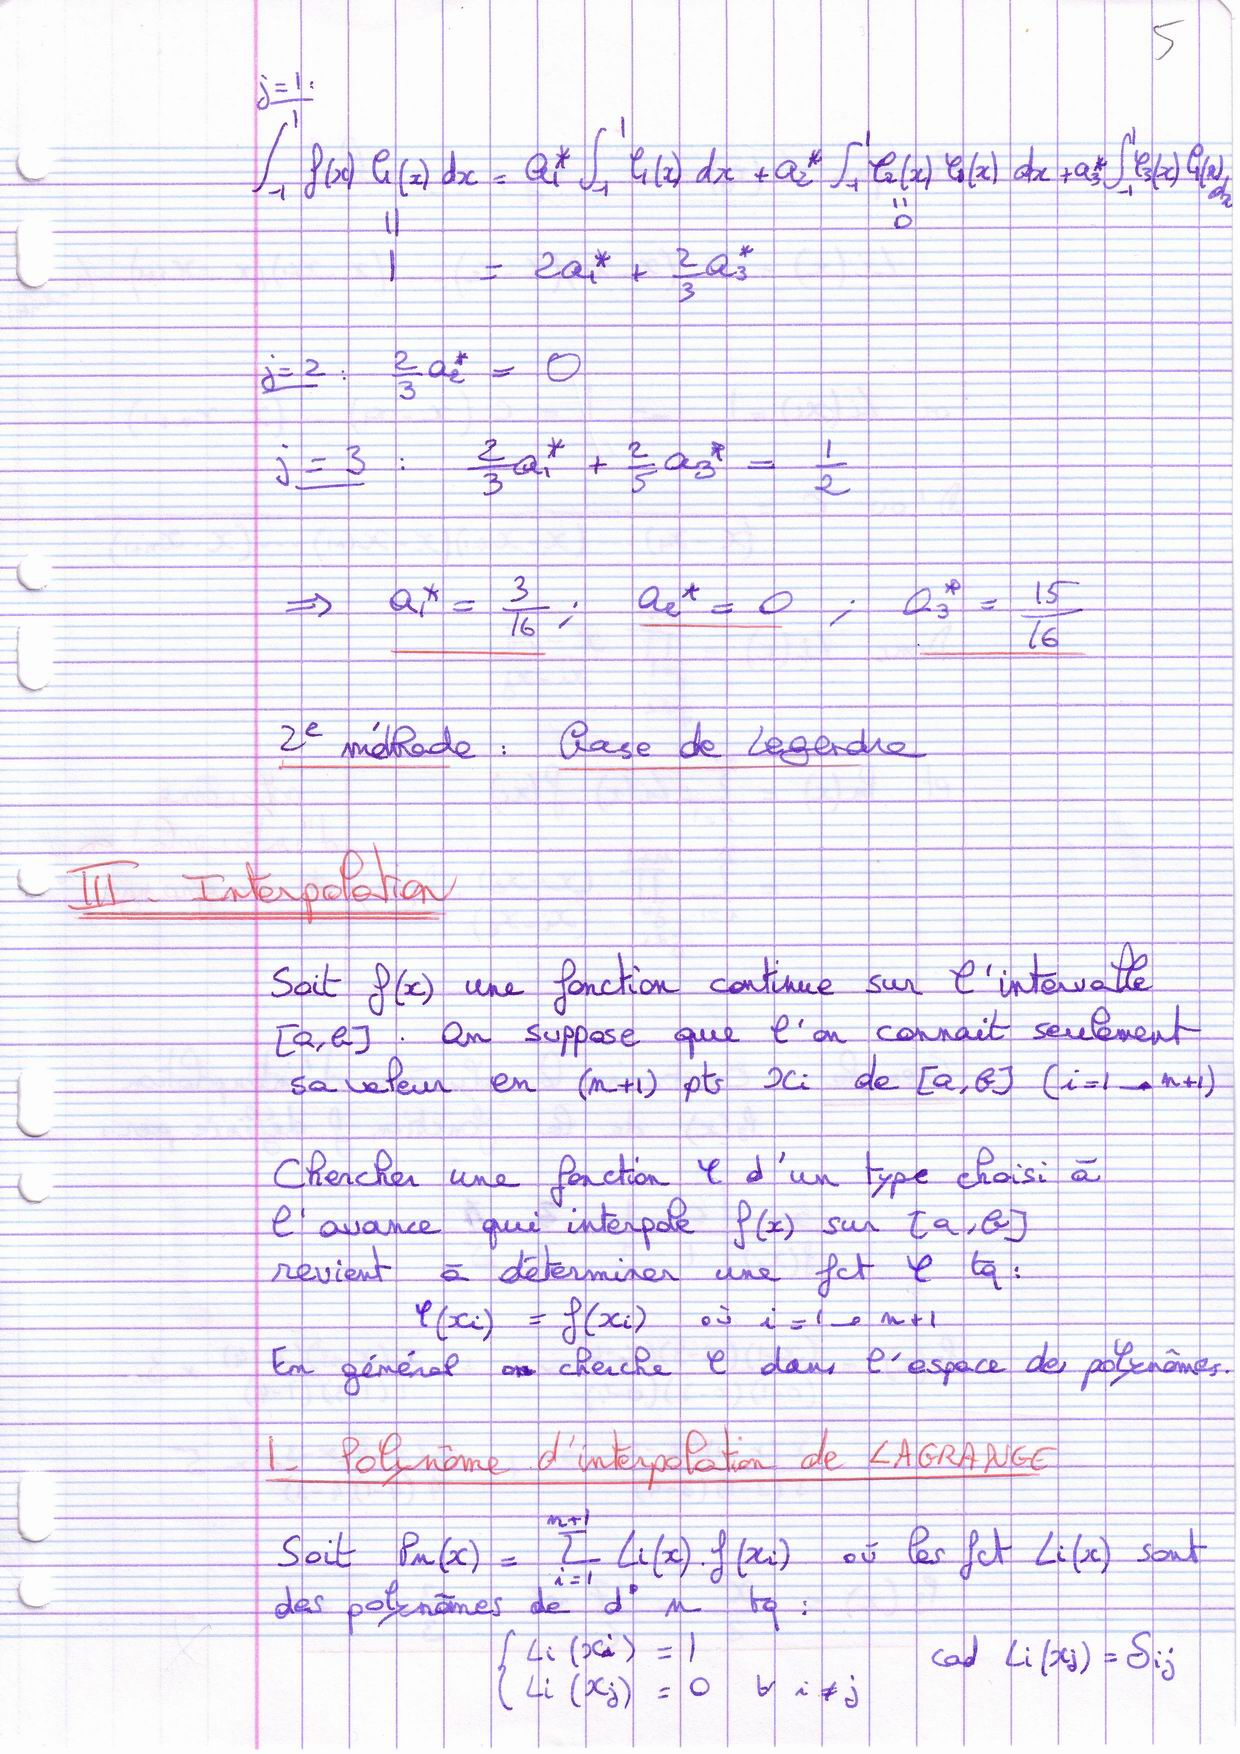 5
j=1:
∫₋₁¹ f(x) φ₁(x) dx = a₁* ∫₋₁¹ φ₁(x) dx + a₂* ∫₋₁¹ φ₂(x) φ₁(x) dx + a₃* ∫₋₁¹ φ₃(x) φ₁(x) dx
|| "
0
1 = 2a₁* + 2/3 a₃*
j=2 : 2/3 a₂* = 0
j=3 : 2/3 a₁* + 2/5 a₃* = 1/2
=> a₁* = 3/16 ; a₂* = 0 ; a₃* = 15/16
2e méthode : Base de Legendre
III. Interpolation
Soit f(x) une fonction continue sur l'intervalle
[a,b]. On suppose que l'on connait seulement
sa valeur en (n+1) pts xi de [a,b] (i=1 → n+1)
Chercher une fonction φ d'un type choisi à
l'avance qui interpole f(x) sur [a,b]
revient à déterminer une fct φ tq :
φ(xi) = f(xi) où i = 1 → n+1
En général on cherche φ dans l'espace des polynômes.
1. Polynôme d'interpolation de LAGRANGE
Soit Pn(x) = Σ_{i=1}^{n+1} Li(x).f(xi) où les fct Li(x) sont
des polynômes de d° n tq :
{ Li(xi) = 1 cad Li(xj) = δij
{ Li(xj) = 0 ∀ i ≠ j